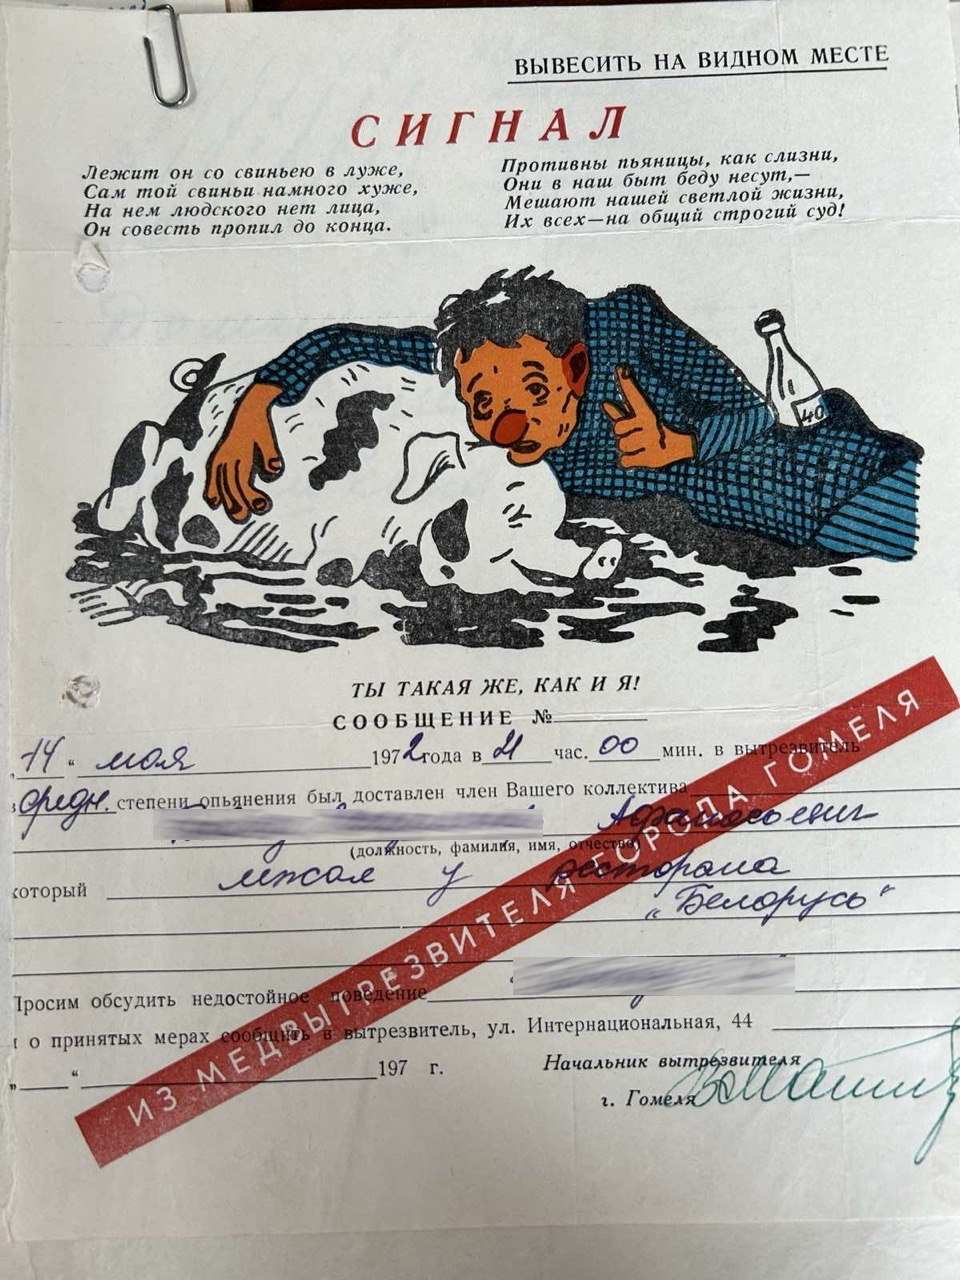 ВЫВЕСИТЬ НА ВИДНОМ МЕСТЕ
СИГНАЛ
Лежит он со свиньею в луже,
Сам той свиньи намного хуже,
На нем людского нет лица,
Он совесть пропил до конца.
Противны пьяницы, как слизни,
Они в наш быт беду несут,—
Мешают нашей светлой жизни,
Их всех—на общий строгий суд!
40
ТЫ ТАКАЯ ЖЕ, КАК И Я!
СООБЩЕНИЕ №
„14“ мая 1972 года в 21 час. 00 мин. в вытрезвитель
в средн. степени опьянения был доставлен член Вашего коллектива
(должность, фамилия, имя, отчество)
который лежал у ресторана
„Белорусь“
Просим обсудить недостойное поведение
и о принятых мерах сообщить в вытрезвитель, ул. Интернациональная, 44
„ “ 197 г.
Начальник вытрезвителя
г. Гомеля
ИЗ МЕДВЫТРЕЗВИТЕЛЯ ГОРОДА ГОМЕЛЯ